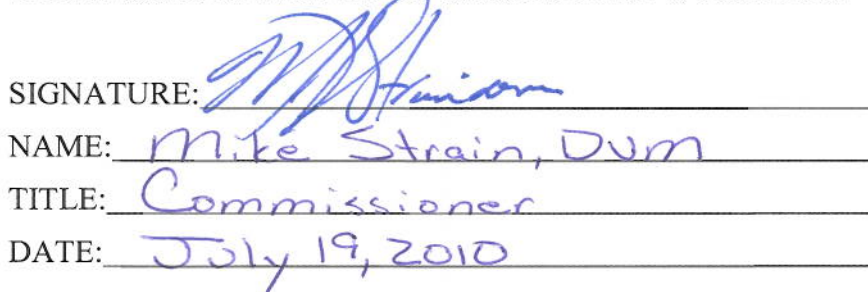 SIGNATURE:
NAME: Mike Strain, DVM
TITLE: Commissioner
DATE: July 19, 2010